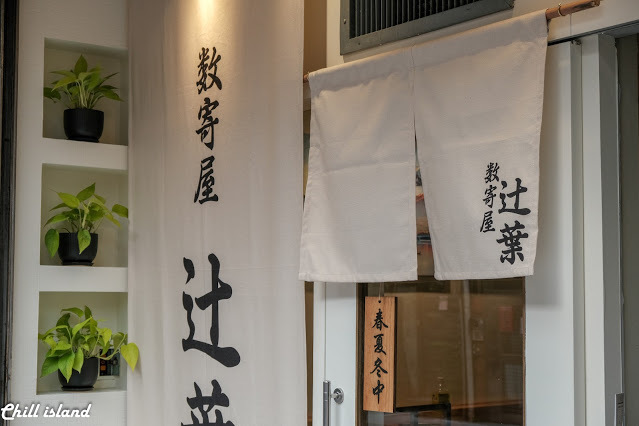 数寄屋
辻葉
数寄屋
辻葉
春夏冬中
Chill island